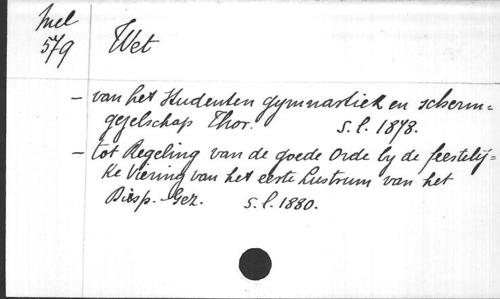 Mel
579
Wet
- van het Studenten gymnastiek en scherm=
gezelschap Thor. S.l. 1878.
- tot Regeling van de goede Orde bij de feestelij=
ke Viering van het eerste Lustrum van het
Disp.-Gez. S.l. 1880.